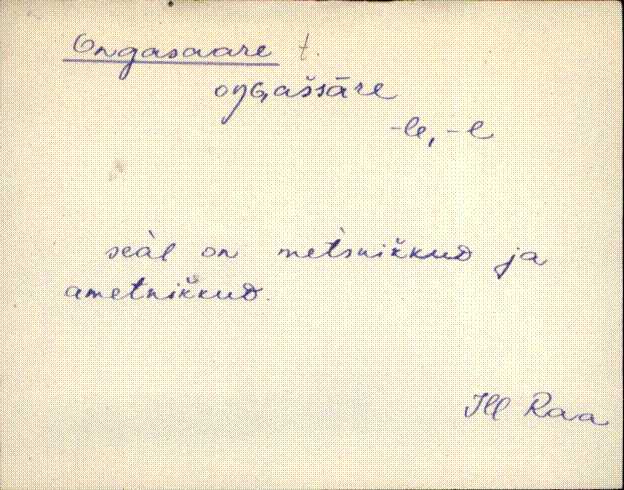 Ongasaare t.
oŋGašsāre
-le, -l
seàl on mètsnikkuD ja
ametnikkuD.
Ill Raa